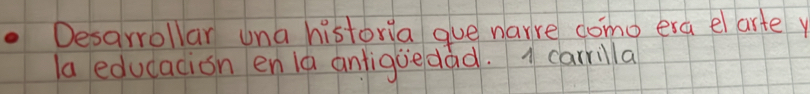 • Desarrollar una historia que narre cómo era el arte y
la educación en la antigüedad. 1 carrilla